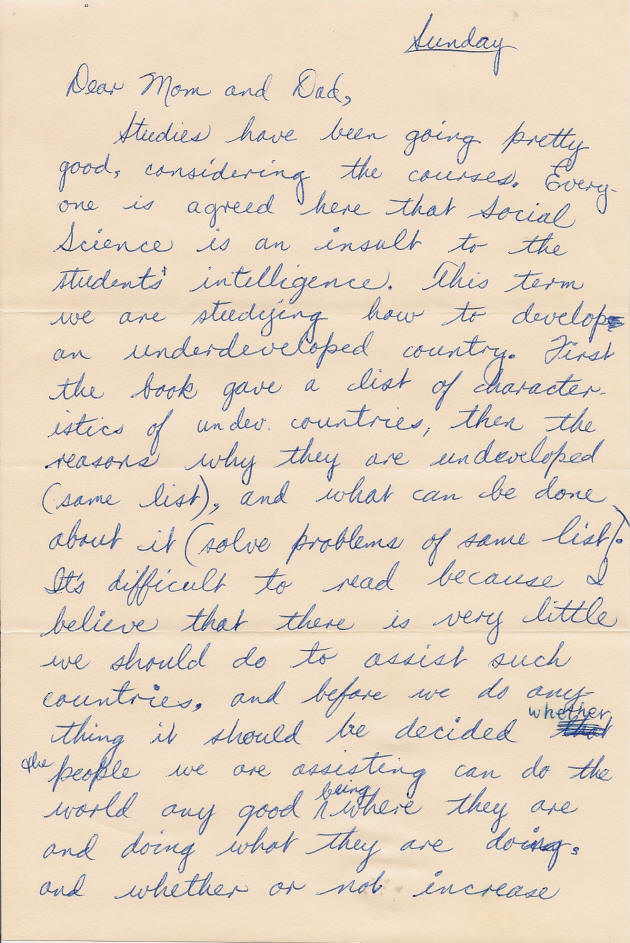 Sunday
Dear Mom and Dad,
Studies have been going pretty
good, considering the courses. Every-
one is agreed here that Social
Science is an insult to the
students' intelligence. This term
we are studying how to develop
an underdeveloped country. First
the book gave a list of character-
istics of undev. countries, then the
reasons why they are undeveloped
(same list), and what can be done
about it (solve problems of same list).
It's difficult to read because I
believe that there is very little
we should do to assist such
countries, and before we do any-
thing it should be decided whether
the people we are assisting can do the
world any good being where they are
and doing what they are doing,
and whether or not increase